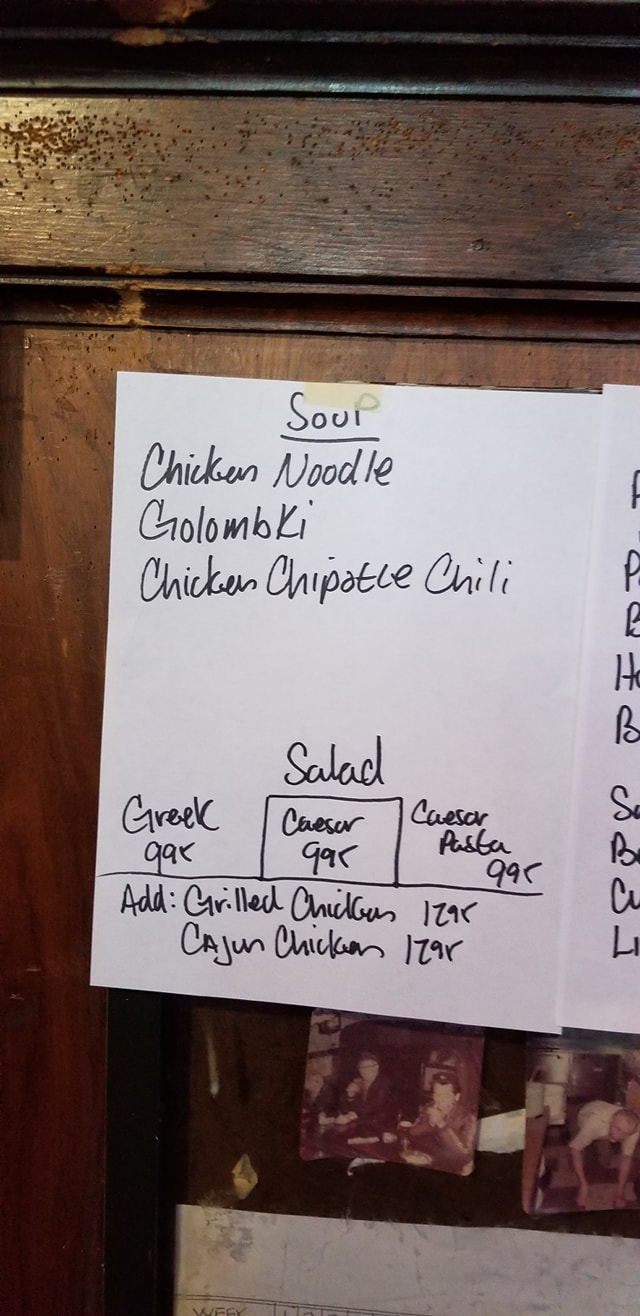 Soup
Chicken Noodle
Golombki
Chicken Chipotle Chili
Salad
Greek
995
Caesar
995
Caesar
Pasta
995
Add: Grilled Chicken 1295
Cajun Chicken 1295
WEEK